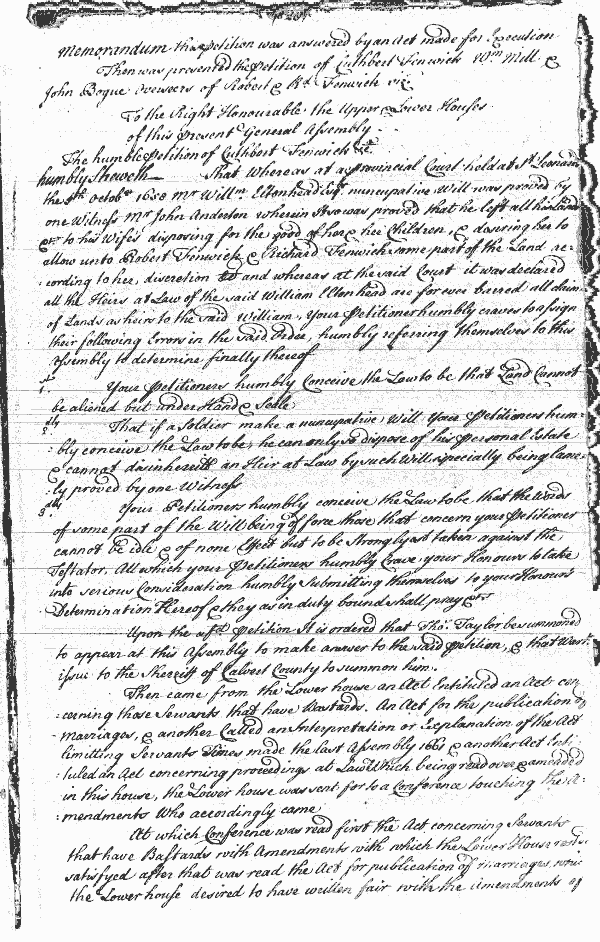 Memorandum the petition was answered by an Act made for Execution
Then was presented the Petition of Cuthbert Fenwick Wm Mill &
John Bogue Overseers of Robert & Rd Fenwick viz
To the Right Honourable the Upper & Lower Houses
of this Present General Assembly
The humble Petition of Cuthbert Fenwick &c
humbly Sheweth That Whereas at a Provincial Court held at St Leonards
the 5th octobr 1658 Mr Willm Eltonhead Esqr nuncupative Will was proved by
one Witness Mr John Anderton wherein It so was proved that he left all his Land
&c to his Wifes disposing for the good of her & her Children, & desiring her to
allow unto Robert Fenwick & Richard Fenwick some part of the Land ac-
:cording to her, discretion and whereas at the said Court it was declared
all the Heirs at Law of the said William Eltonhead are for ever barred all claim
of Lands as heirs to the said William, Your Petitioner humbly craves to assign
their following Errors in the said Order, humbly referring themselves to this
Assembly to determine finally thereof
1st Your Petitioners humbly Conceive the Law to be that Land Cannot
be aliened but under Hand & Seale
2dly That if a Soldier make a nuncupative Will Your Petitioners hum-
:bly conceive the Law to be, he can only so dispose of his personal Estate
& cannot disinherit an Heir at Law by such Will especially being lame-
:ly proved by one Witness
3dly Your Petitioners humbly conceive the Law to be that the Words
of some part of the Will being of force those that concern your Petitioner
cannot be idle & of none Effect but to be Strongly as taken against the
Testator. All which your Petitioners humbly Crave your Honours to take
into serious Consideration humbly Submitting themselves to your Honours
Determination Hereof & they as in duty bound shall pray &ca
Upon the afd Petition It is ordered that Tho: Taylor be summoned
to appear at this Assembly to make answer to the said Petition, & that Warrt
issue to the Sherriff of Calvert County to summon him.
Then came from the Lower house an Act Entituled an Act con
:cerning those Servants that have Bastards. An Act for the publication of
marriages, & another Called an Interpretation or Explanation of the Act
limitting Servants Times made the last Assembly 1661 & another Act Enti-
:tuled an Act concerning proceedings at Law Which being read over & amended
in this house, the Lower house was sent for to a Conference touching the A-
:mendments Who accordingly came
At which Conference was read first the Act concerning Servants
that have Bastards with Amendments with which the Lower House rests
satisfyed after that was read the Act for publication of marriages, which
the Lower house desired to have written fair with the Amendments of